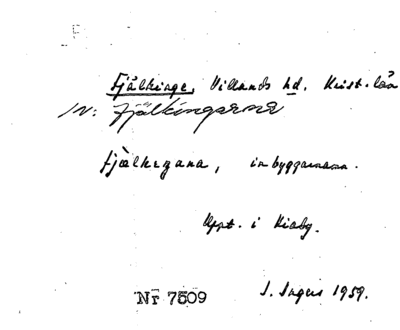 Fjälkinge, Villands hd. Krist. län
IN: Fjälkingarna
fjälkegana, inbyggarnamn.
Uppt. i Kiaby.
Nr 7509 I. Ingers 1959.